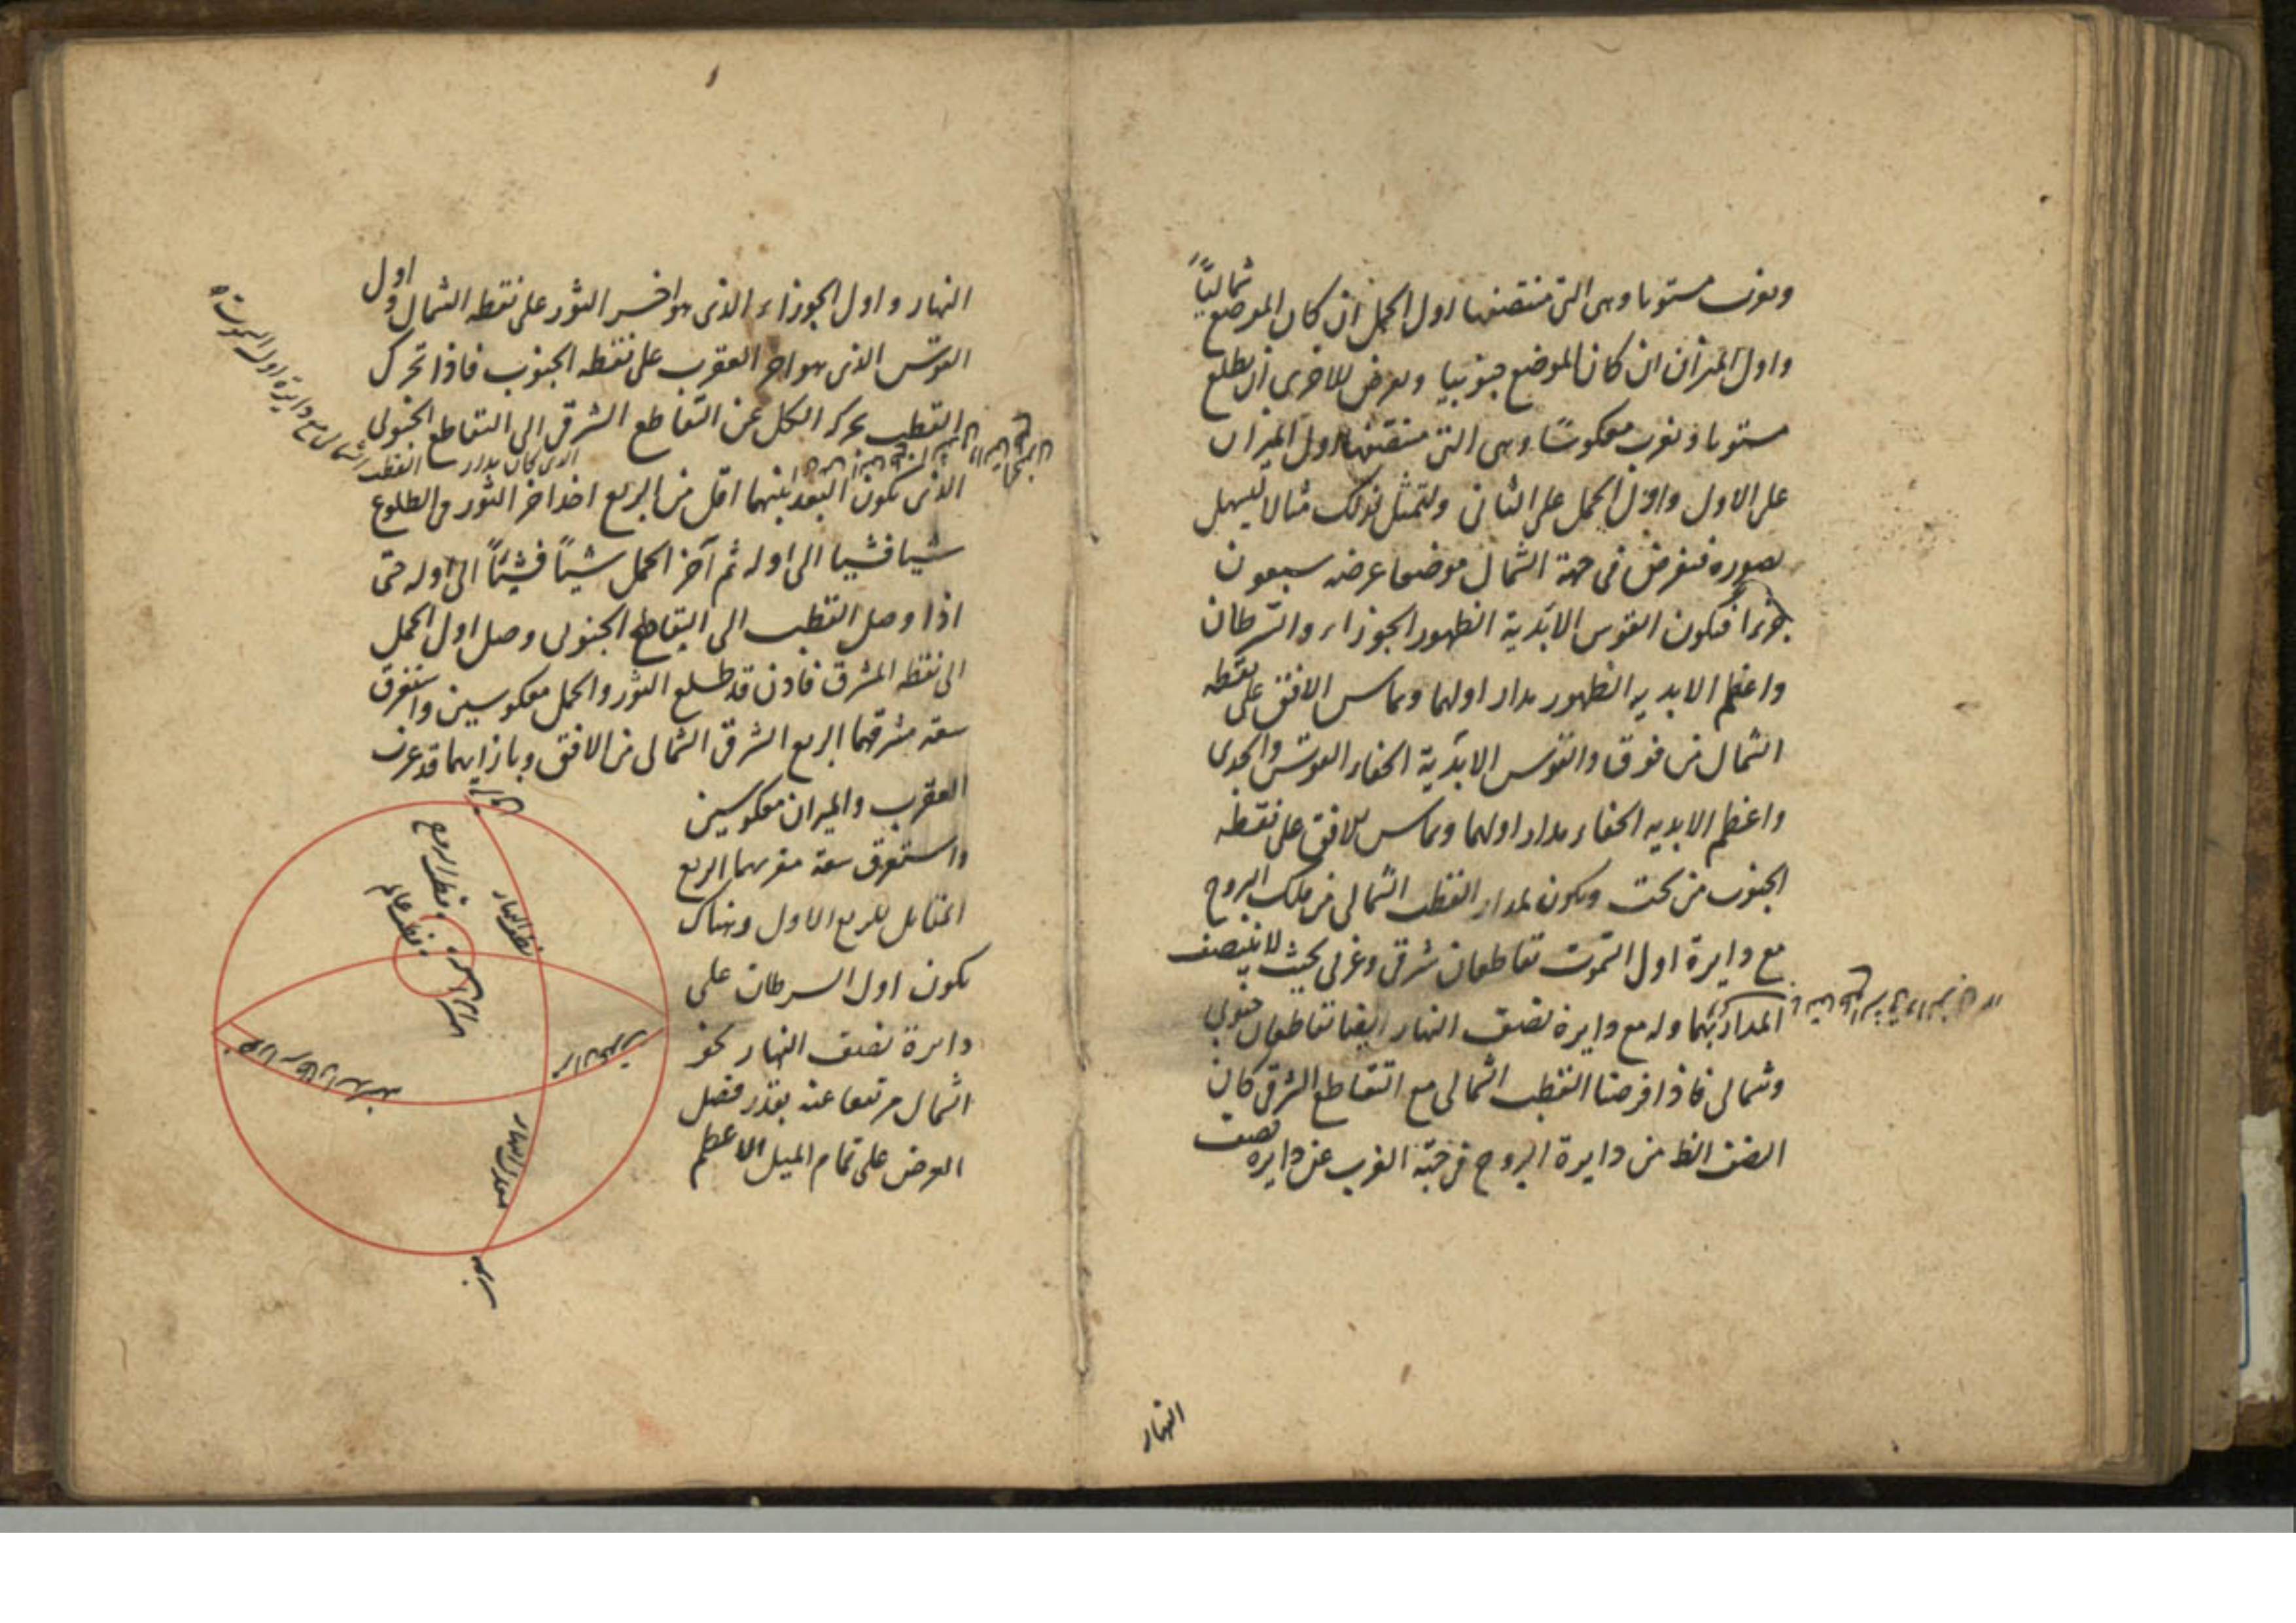 وتغرب مستويا وهى التى منتصفها اول الحمل ان كان الموضع شماليًّا
واول الميزان ان كان الموضع جنوبيا وتعرض للاخرى ان تطلع
مستويا وتغرب معكوسًا وهى التى منتصفها اول الميزان
على الاول واول الحمل على الثانى ولنمثل لذلك مثالا ليسهل
تصوره فنفرض فى جهة الشمال موضعا عرضه سبعون
جزءا فتكون القوس الابدية الظهور الجوزاء والسرطان
واعظم الابدية الظهور مدار اولهما ويماس الافق على نقطه
الشمال من فوق والقوس الابدية الخفاء القوس والجدى
واعظم الابدية الخفاء مدار اولهما ويماس للافق على نقطه
الجنوب من تحت ويكون لمدار القطب الشمالى من فلك البروج
مع دايرة اول السموت تقاطعان شرقى وغربى بحيث لا ينتصف
المدار بهما وله مع دايرة نصف النهار ايضا تقاطعان جنوبى
وشمالى فاذا فرضنا القطب الشمالى مع التقاطع الشرقى كان
النصف الظ من دايرة البروج فى جهة الغرب عن دايره نصف
النهار
النهار واول الجوزاء الذى هو اخر الثور على نقطه الشمال و اول
القوس الذى هو اخر العقرب على نقطه الجنوب فاذا تحرك
القطب بحركة الكل عن التقاطع الشرقى الى التقاطع الجنوبى
الذى كان مدار القطب الشمالى مع دايرة اول السموت
الذى يكون البعد بينهما اقل من الربع اخذ اخر الثور فى الطلوع
شيا فشيا الى اوله ثم آخر الحمل شيئاً فشيئاً الى اوله حتى
اذا وصل القطب الى التقاطع الجنوبى وصل اول الحمل
الى نقطه المشرق فاذن قد طلع الثور والحمل معكوسين واستغرق
سعة مشرقهما الربع الشرقى الشمالى من الافق وبازايهما قد غرب
العقرب والميزان معكوسين
واستغرق سعة مغربهما الربع
المقابل للربع الاول وهناك
يكون اول السرطان على
دايرة نصف النهار نحو
الشمال مرتفعا عنه بقدر فضل
العرض على تمام الميل الاعظم
قطب البروج
قطب عالم
نصف النهار